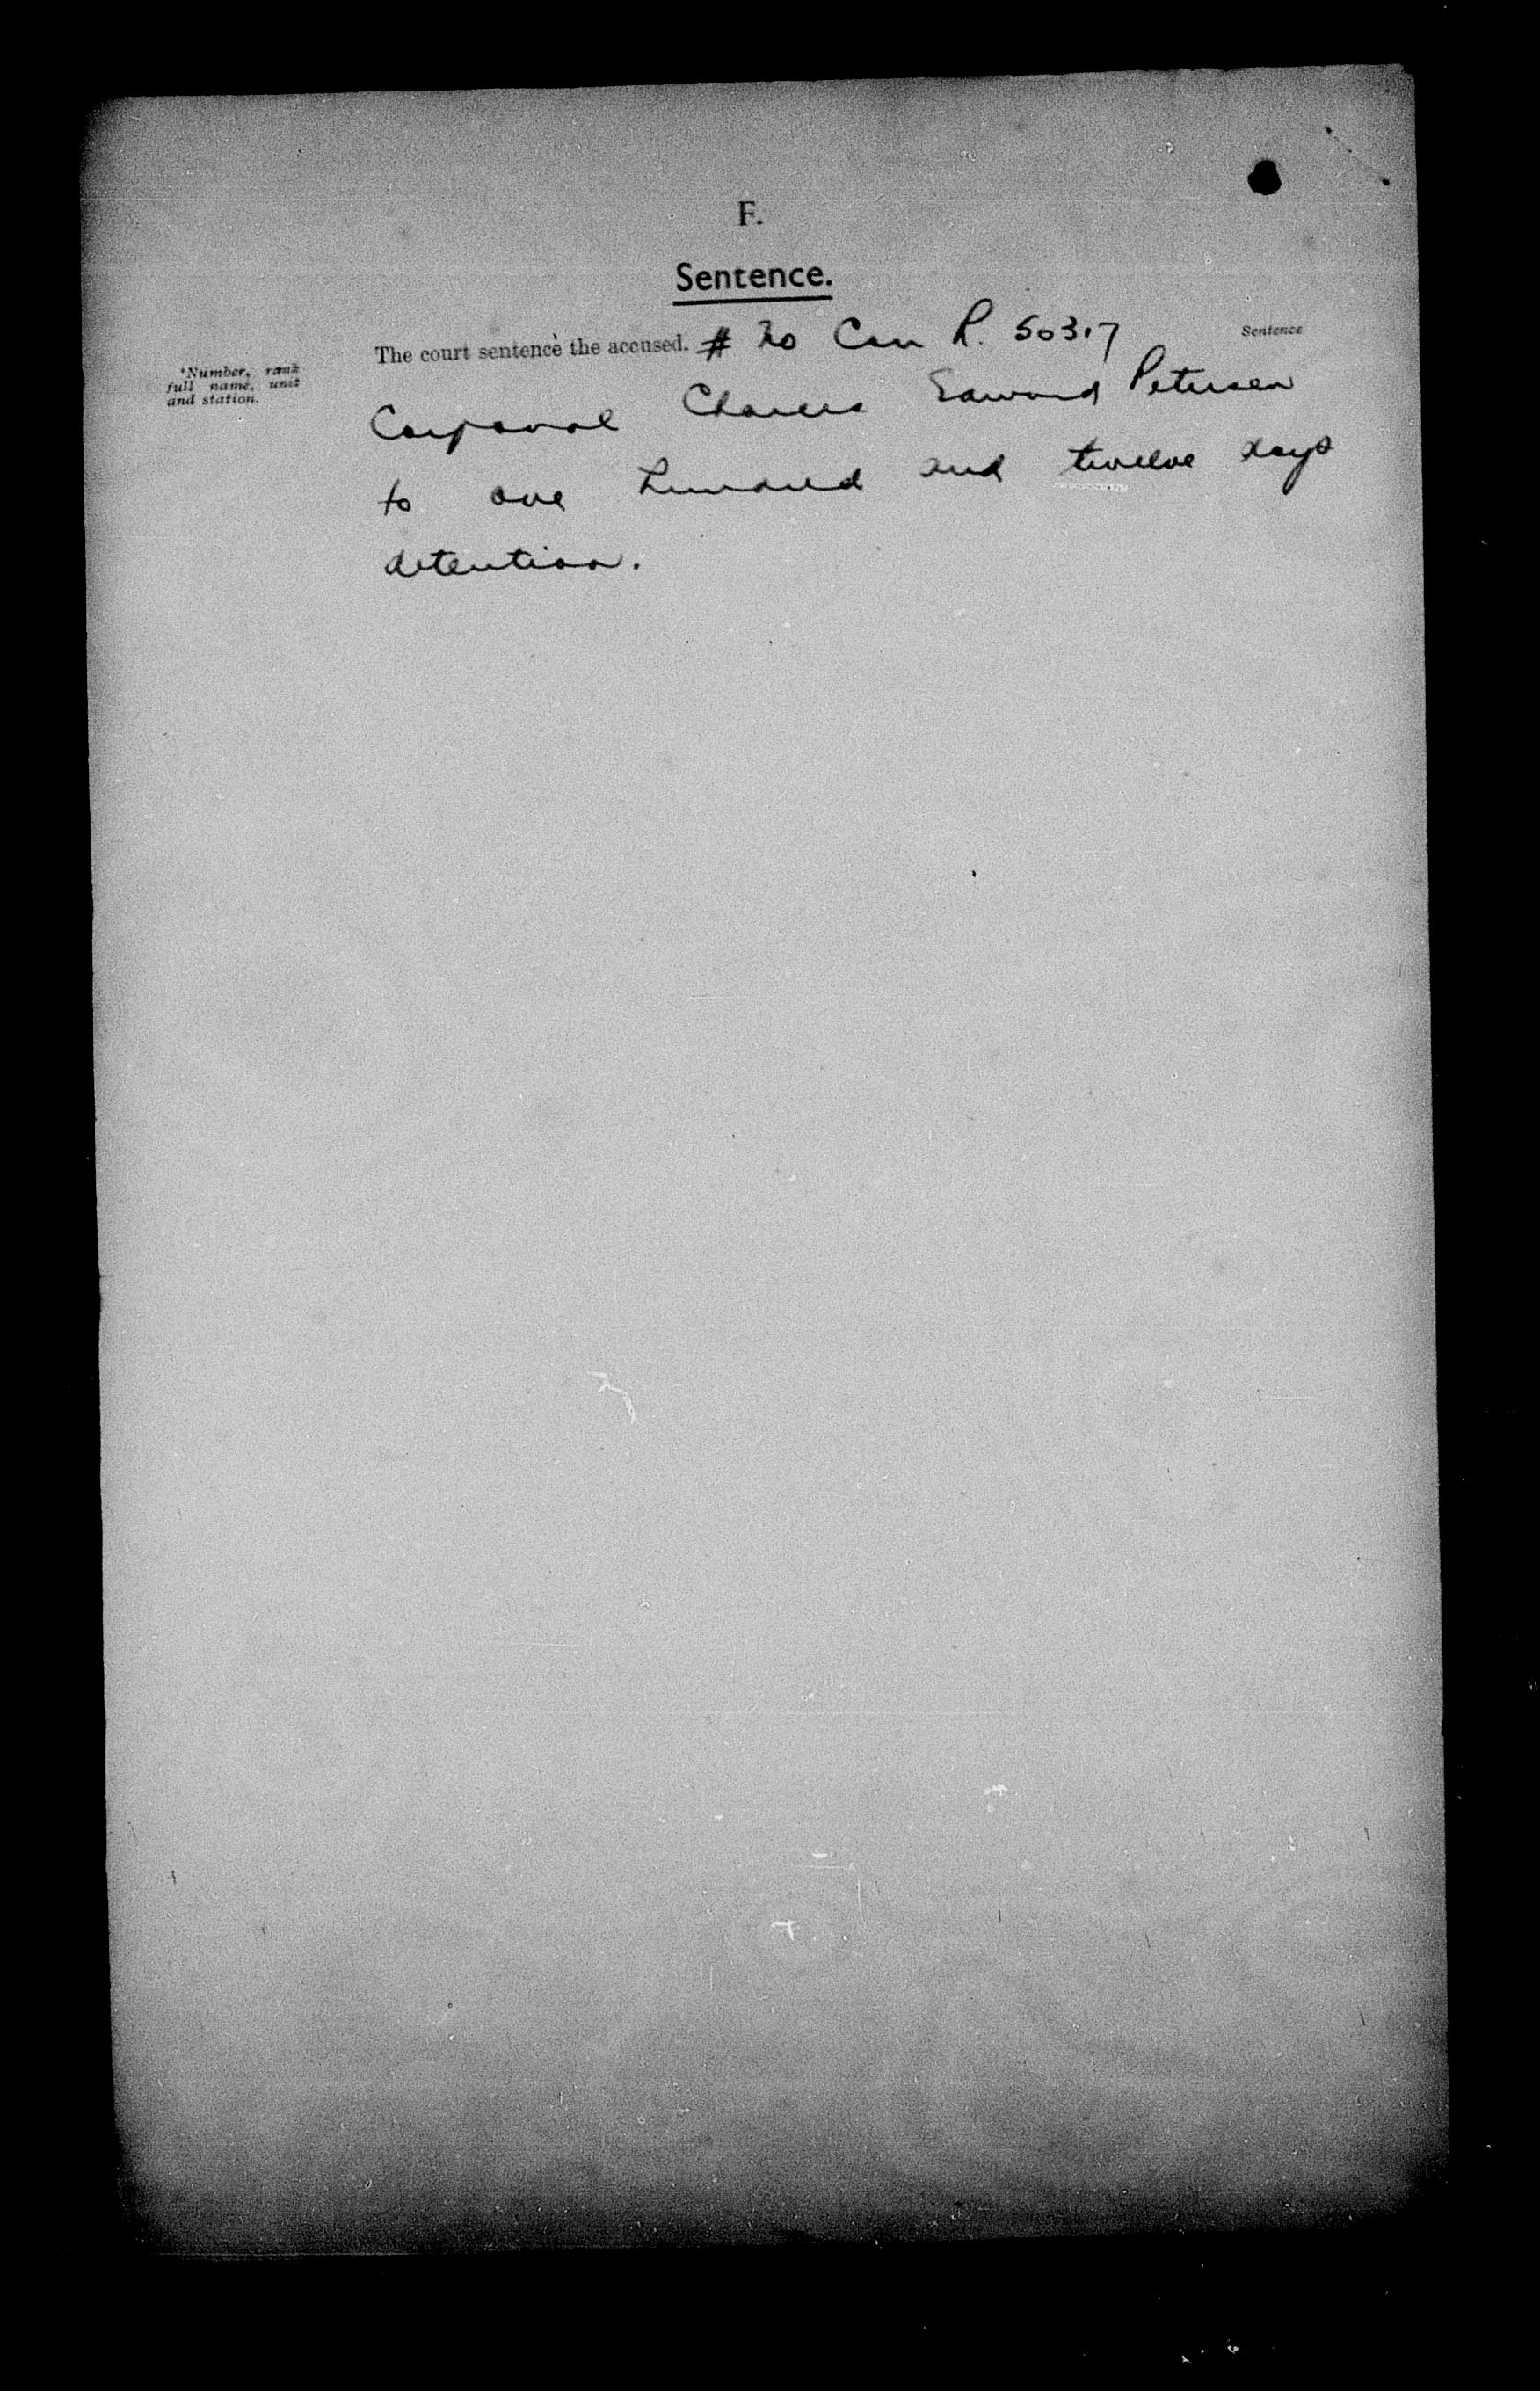 F.
Sentence.
The court sentence the accused. # 20 Can R. 50317
Sentence
*Number, rank
full name, unit
and station.
Corporal Charles Edward Petersen
to one hundred and twelve days
detention.